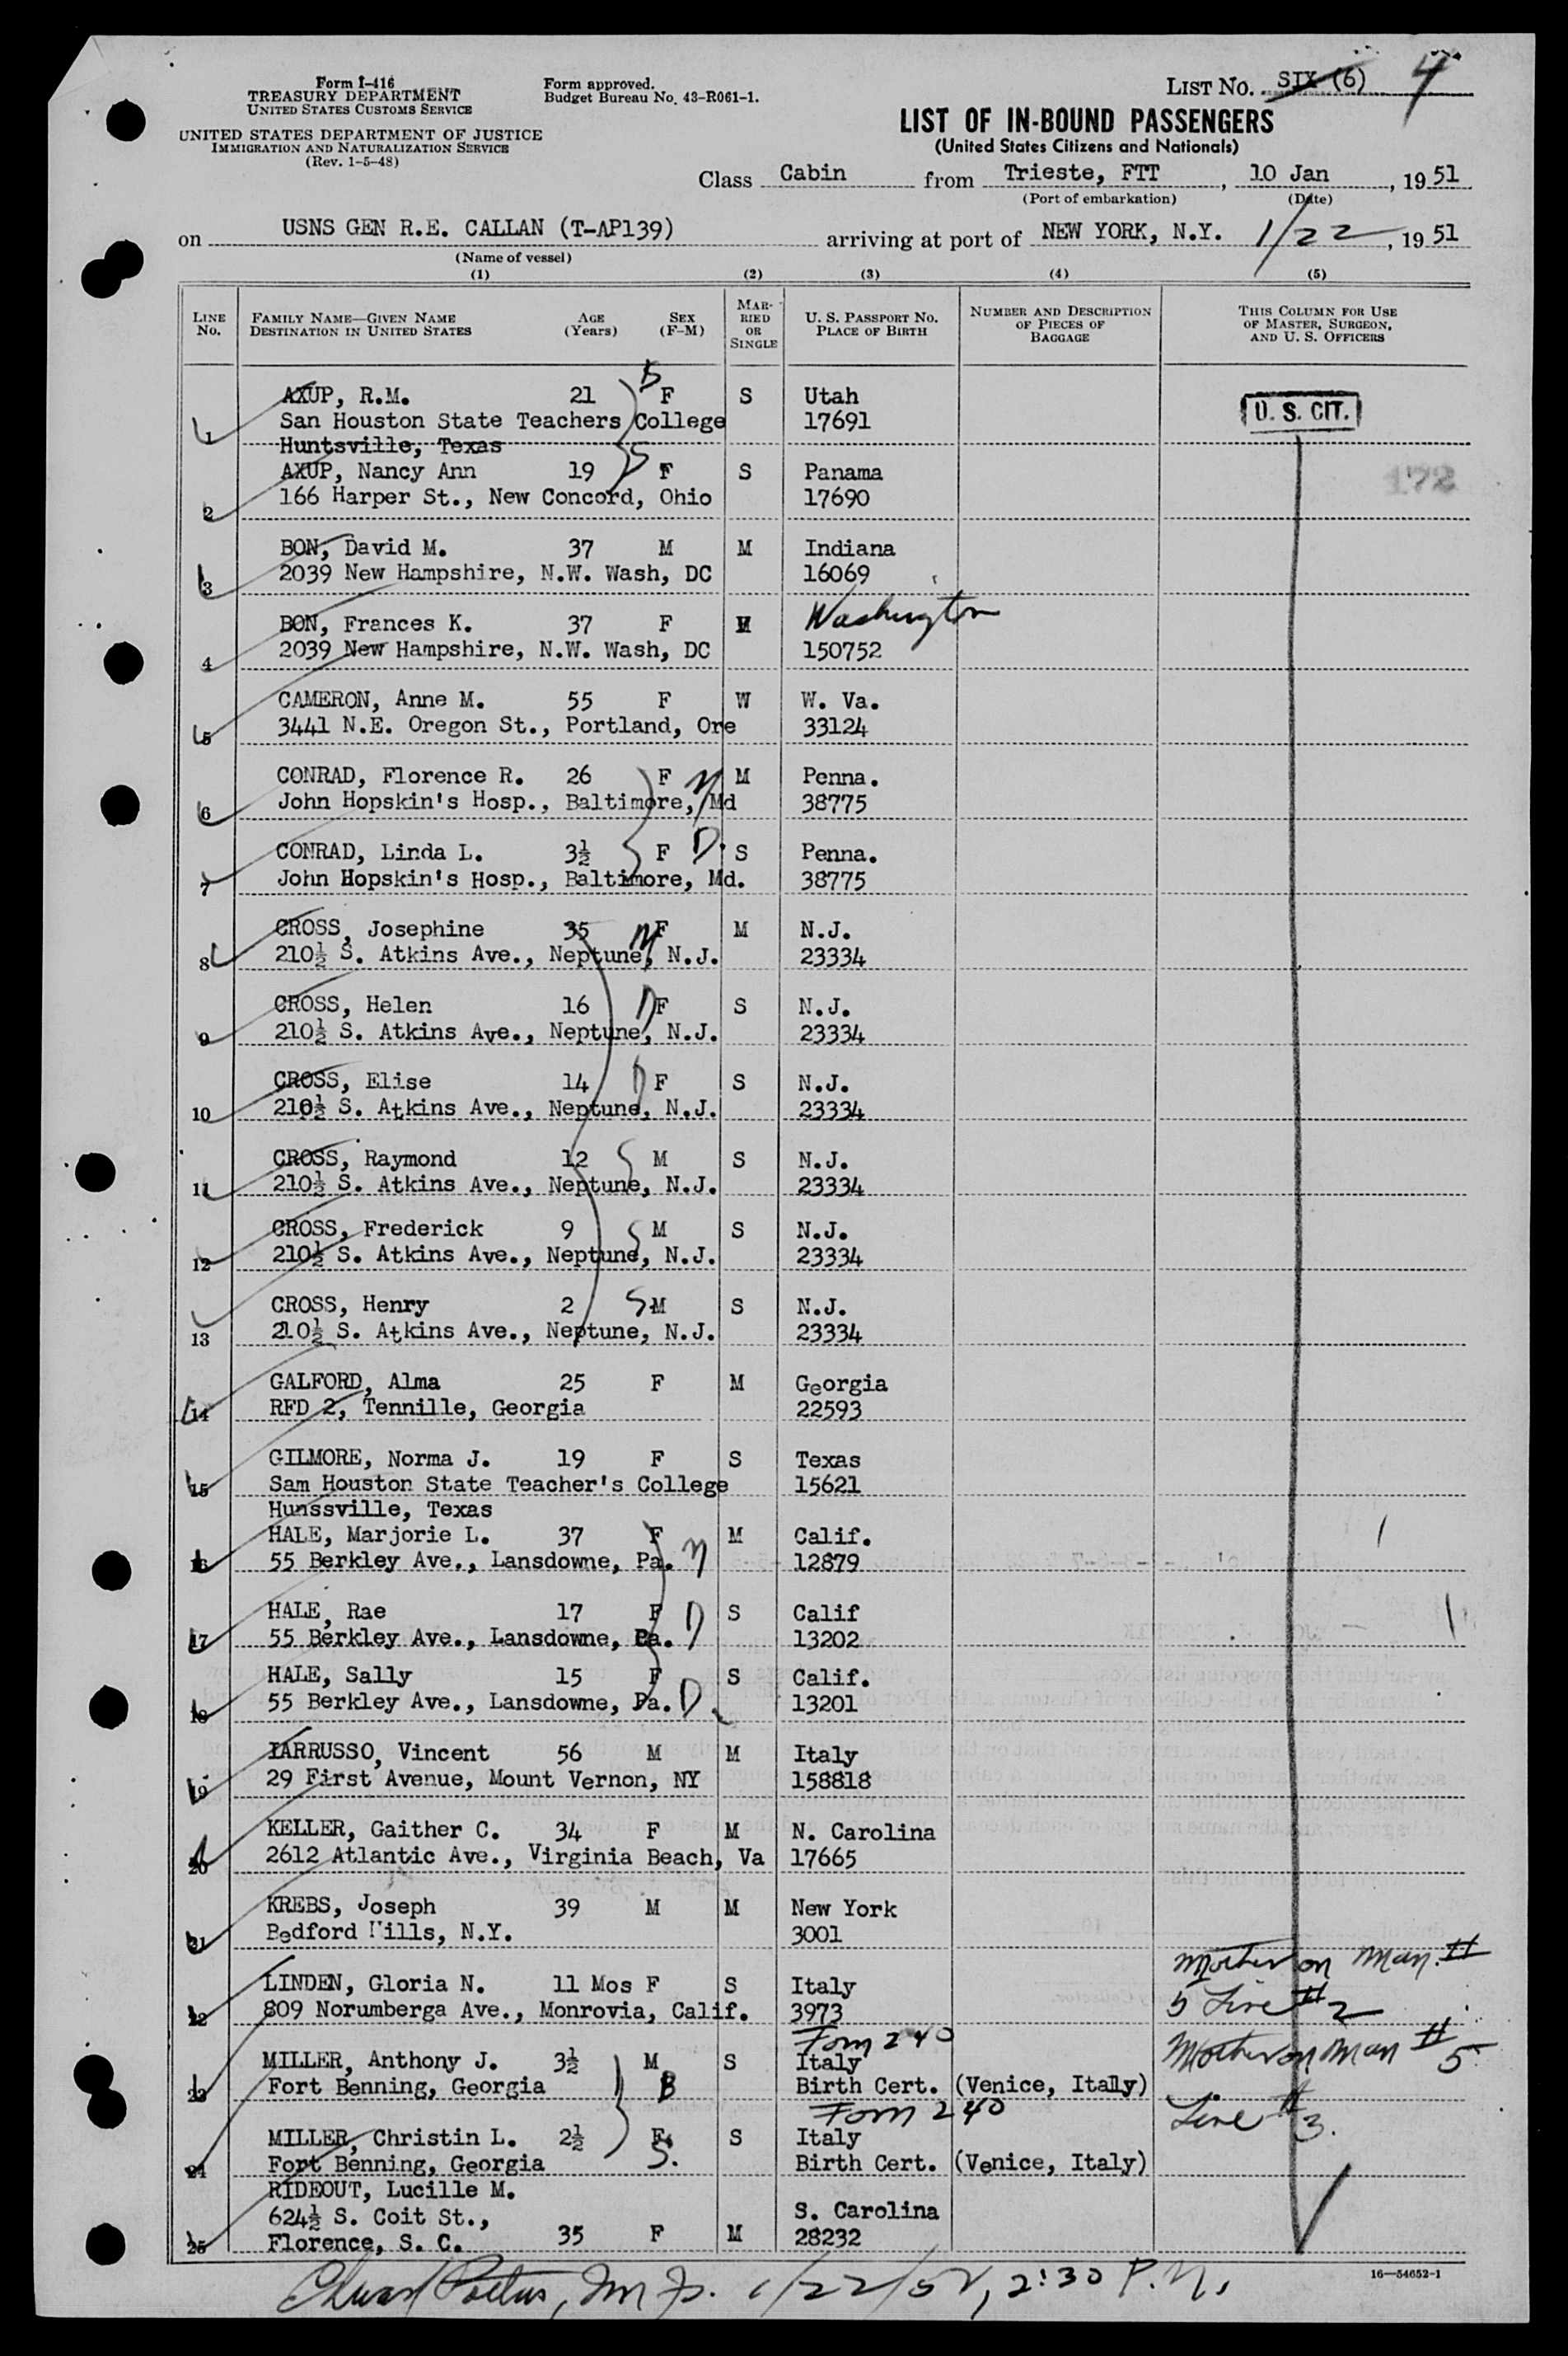 Form I-416
TREASURY DEPARTMENT
UNITED STATES CUSTOMS SERVICE
UNITED STATES DEPARTMENT OF JUSTICE
IMMIGRATION AND NATURALIZATION SERVICE
(Rev. 1-5-48)
Form approved.
Budget Bureau No. 43-R061-1.
LIST NO. SIX (6) 4
LIST OF IN-BOUND PASSENGERS
(United States Citizens and Nationals)
Class Cabin from Trieste, FTT, 10 Jan, 19 51
(Port of embarkation) (Date)
on USNS GEN R.E. CALLAN (T-AP139) arriving at port of NEW YORK, N.Y. 1/22, 19 51
(Name of vessel)
(1) (2) (3) (4) (5)
LINE No. FAMILY NAME—GIVEN NAME DESTINATION IN UNITED STATES AGE (Years) SEX (F-M) MARRIED OR SINGLE U. S. PASSPORT NO. PLACE OF BIRTH NUMBER AND DESCRIPTION OF PIECES OF BAGGAGE THIS COLUMN FOR USE OF MASTER, SURGEON, AND U. S. OFFICERS
AXUP, R.M. 21 F S Utah U. S. CIT.
1 San Houston State Teachers College 17691
Huntsville, Texas
AXUP, Nancy Ann 19 F S Panama 172
2 166 Harper St., New Concord, Ohio 17690
BON, David M. 37 M M Indiana
3 2039 New Hampshire, N.W. Wash, DC 16069
BON, Frances K. 37 F M Washington
4 2039 New Hampshire, N.W. Wash, DC 150752
CAMERON, Anne M. 55 F W W. Va.
5 3441 N.E. Oregon St., Portland, Ore 33124
CONRAD, Florence R. 26 F M M Penna.
6 John Hopskin's Hosp., Baltimore, Md 38775
CONRAD, Linda L. 3½ F D. S Penna.
7 John Hopskin's Hosp., Baltimore, Md. 38775
CROSS, Josephine 35 M F M N.J.
8 210½ S. Atkins Ave., Neptune, N.J. 23334
CROSS, Helen 16 D F S N.J.
9 210½ S. Atkins Ave., Neptune, N.J. 23334
CROSS, Elise 14 D F S N.J.
10 210½ S. Atkins Ave., Neptune, N.J. 23334
CROSS, Raymond 12 S M S N.J.
11 210½ S. Atkins Ave., Neptune, N.J. 23334
CROSS, Frederick 9 S M S N.J.
12 210½ S. Atkins Ave., Neptune, N.J. 23334
CROSS, Henry 2 S M S N.J.
13 210½ S. Atkins Ave., Neptune, N.J. 23334
GALFORD, Alma 25 F M Georgia
14 RFD 2, Tennille, Georgia 22593
GILMORE, Norma J. 19 F S Texas
15 Sam Houston State Teacher's College 15621
Hunssville, Texas
HALE, Marjorie L. 37 F M Calif.
16 55 Berkley Ave., Lansdowne, Pa. M 12879
HALE, Rae 17 F D S Calif
17 55 Berkley Ave., Lansdowne, Pa. 13202
HALE, Sally 15 F S Calif.
18 55 Berkley Ave., Lansdowne, Pa. D. 13201
IARRUSSO, Vincent 56 M M Italy
19 29 First Avenue, Mount Vernon, NY 158818
KELLER, Gaither C. 34 F M N. Carolina
20 2612 Atlantic Ave., Virginia Beach, Va 17665
KREBS, Joseph 39 M M New York
21 Bedford Hills, N.Y. 3001
LINDEN, Gloria N. 11 Mos F S Italy Mother on Man. #
22 809 Norumberga Ave., Monrovia, Calif. 3973 5 Line # 2
Form 240
MILLER, Anthony J. 3½ M S Italy Mother on Man # 5
23 Fort Benning, Georgia B Birth Cert. (Venice, Italy)
Form 240 Line # 3.
MILLER, Christin L. 2½ F. S Italy
24 Fort Benning, Georgia S. Birth Cert. (Venice, Italy)
RIDEOUT, Lucille M.
624½ S. Coit St., S. Carolina
25 Florence, S. C. 35 F M 28232
16—54652-1
1/22/51, 2:30 P.M.